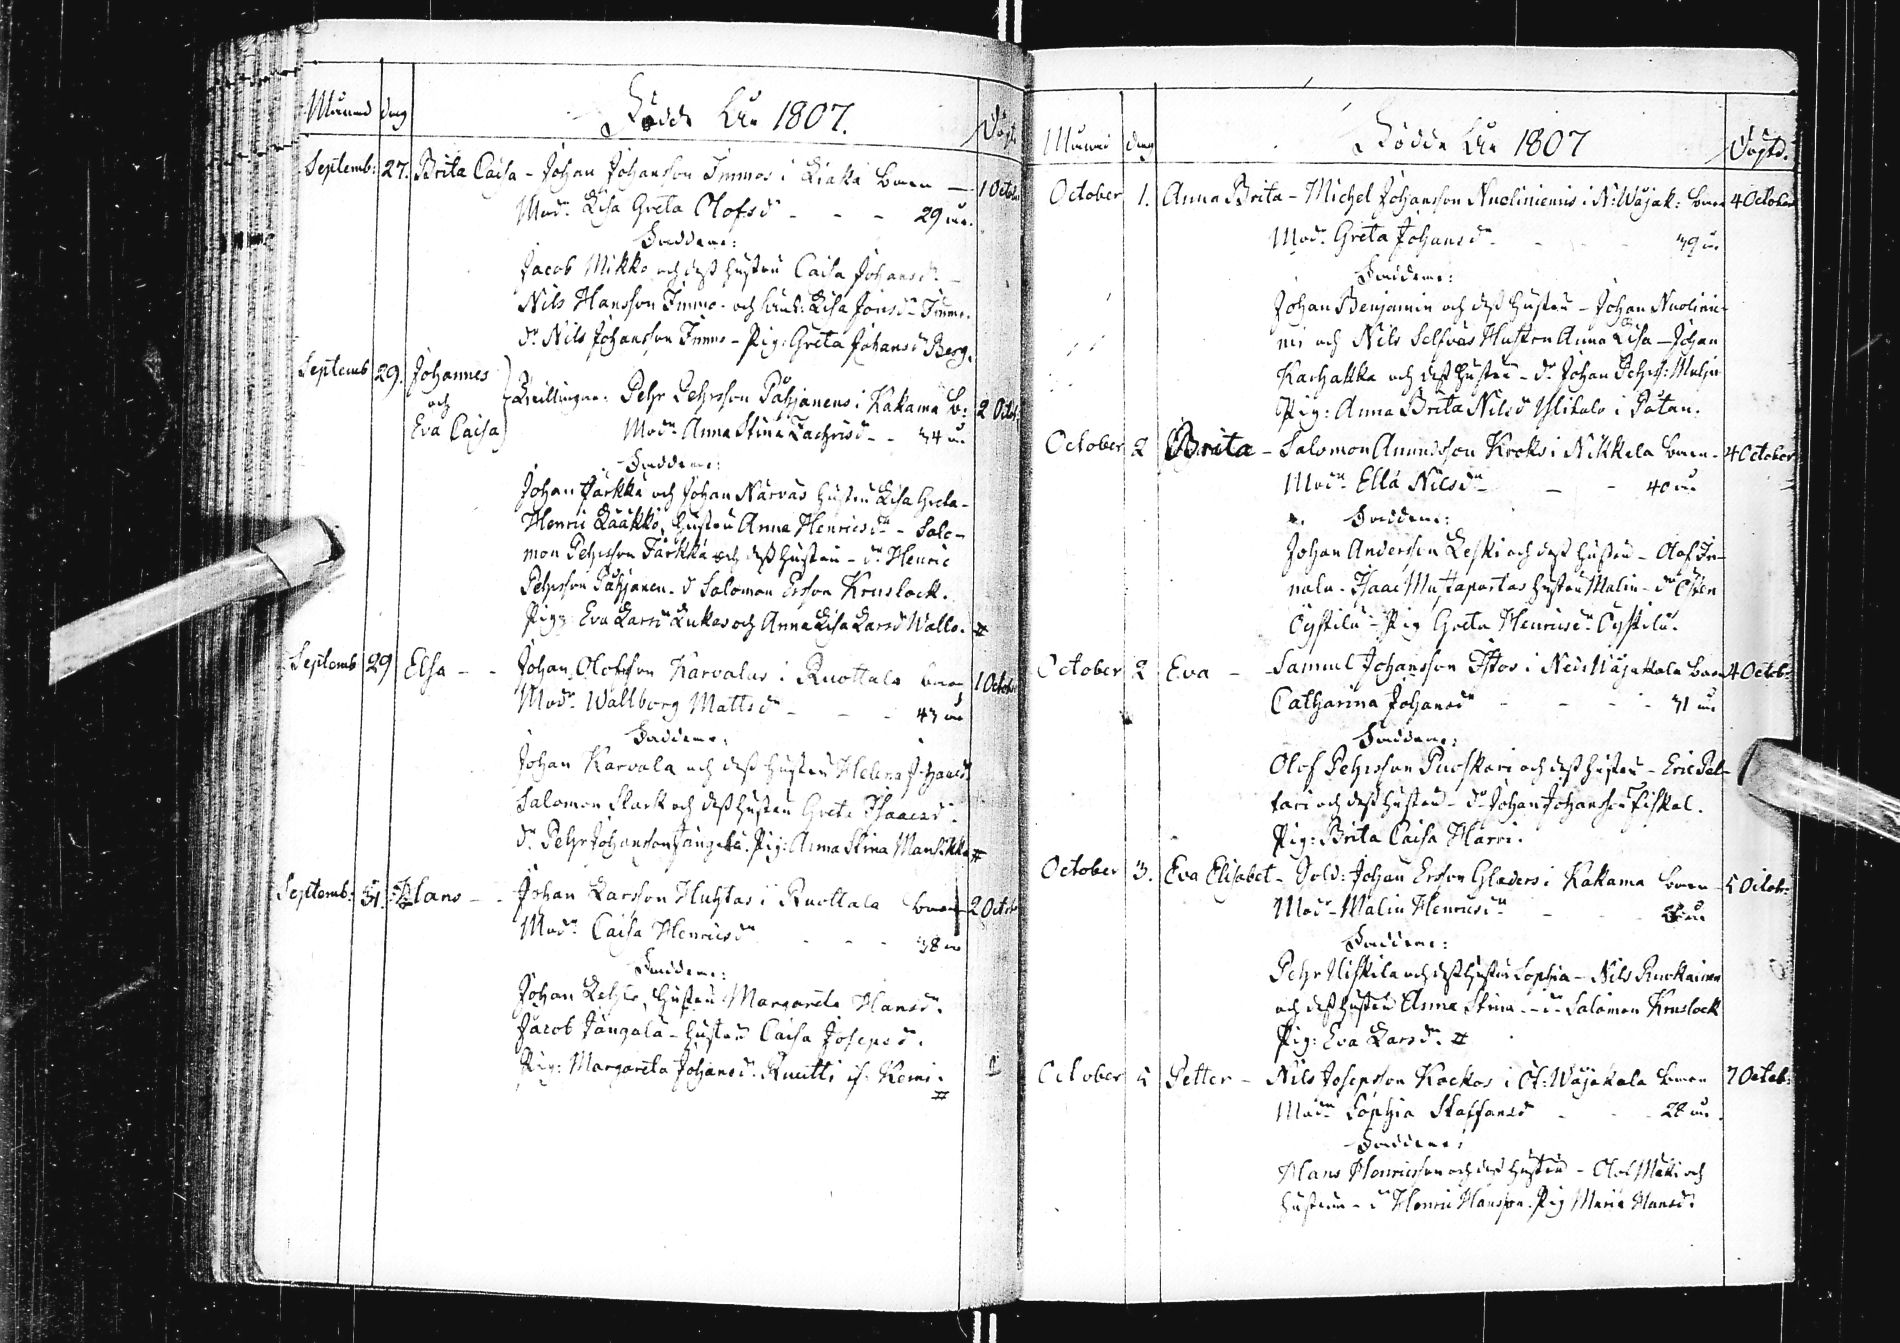 Månad dag Födde Åhr 1807. Döpt.
Septemb: 27. Brita Caisa - Johan Johansson Immos i Liakka barn - 1 Octob:
Mod: Lisa Greta Olofsd - - - 29 år.
Faddere:
Jacob Mikko och dess hustru Caisa Johansd:
Nils Hansson Immo - och Lisa Jonsd: Immo.
dr: Nils Johansson Immo - Pig: Greta Johansd Berg.
Septemb 29. Johannes
och
Eva Caisa
Tvillingar. Pehr Pehrsson Pähjanens i Kakama b: 2 Octob:
Mod: Anna Stina Zachrisd - - 34 år
Faddere:
Johan Järkkä och Johan Närväs hustru Lisa Greta -
Henric Lääkkö, hustru Anna Henricsdr - Salo-
mon Pehrsson Färkkä och dess hustru - dr Henric
Pehrsson Pähjanen. d Salomon Ersson Kruslock.
Pig: Eva Larsd Lukas och Anna Lisa Larsd Wallo. #
Septemb 29 Elsa - - Johan Olofsson Karvalas i Ruottala barn 1 Octob:
Mod: Wallborg Mattsd - - - 43 år
Faddere:
Johan Karvala och dess hustru Helena Johansd
Salomon Stark och dess hustru Greta Isaacsd.
dr Pehr Johansson Jängälä. Pig: Anna Stina Mansikka #
Septemb: 31. Hans - - Johan Larsson Huhtas i Ruottala barn 2 Octob:
Mod: Caisa Henricsd - - - 38 år
Faddere:
Johan hustru Margareta Hansd.
Jacob Jängälä - hustru Caisa Josepsd.
Pig: Margareta Johansd. Ruutti if: Kemi.
#
Månad dag Födde Åhr 1807 Döpt.
October 1. Anna Brita - Michel Johansson Nuoliniemis i N: Wojak: barn 4 October
Mod: Greta Johansd - - - 39 år
Faddere:
Johan Benjamin och dess hustru - Johan Nuolinie-
mis och Nils Selfväs Hustru Anna Lisa - Johan
Karhakka och dess hustru - dr Johan
Pig: Anna Brita Nilsd i Pätan.
October 2 Brita - Salomon Amundsson Kroks i Nikkala barn - 4 October
Mod: Ella Nilsdr - - 40 år
Faddere:
Johan Andersson Leski och dess hustru - Olof In-
nala - Isaac Mustaparttas hustru Malin - dr
- Pig Greta Henricsd.
October 2 Eva - Samuel Johansson i Wojakkala barn 4 Octob:
Catharina Johansd - - - 31 år
Faddere:
Olof Pehrsson Ruoskari och dess hustru - Eric Pel-
tari och dess hustru - dr Johan Johansson Fiskal.
Pig: Brita Caisa Harri.
October 3. Eva Elisabet - Sold: Johan Ersson Gladers i Kakama barn - 5 Octob:
Mod: Malin Henricsdr - - - år
Faddere:
Pehr Niskila och dess hustru Sophia - Nils Ruokainen
och dess hustru Anna Stina - d Salomon Kruslock
Pig: Eva Larsd. #
October 5 Petter - Nils Josepsson Kockos i Öf: Wojakala barn 7 Octob:
Mod: Sophia Staffansd - - 28 år.
Faddere:
Hans Henricsson och dess hustru - Olof Mäki och
hustrun - d Henric Hansson. Pig Maria Hansd.